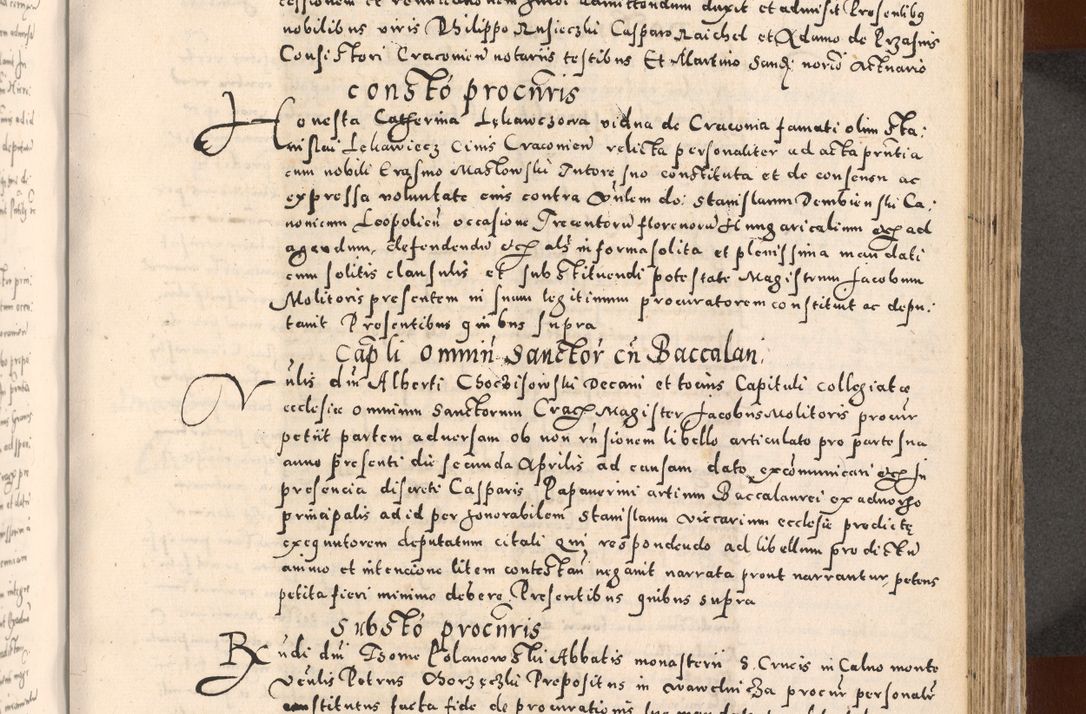 cessionem et renunciationem huiusmodi admittendum duxit et admisit Presentibus
nobilibus viris Philippo Rusieczki Casparo Raichel et Adamo de Przasnis
Consistorii Cracovien notariis testibus Et Martino actuario
Constō procūris
Honesta Catherina Lękawczowa vidua de Cracovia famati olim Sta:
nislai Lękawiecz civis Cracovien relicta personaliter ad acta pn̄tia
cum nobili Erasmo Maslowski Tutore suo constituta et de consensu ac
expressa voluntate eius contra Vn̄lem do: Stanislaum Dembienski Ca:
nonicum Leopolien̄ occasione Trecentorū florenorū Hungaricalium etc ad
agendum, defendendū etc als in forma solita et plenissima mandati
cum solitis clausulis et substituendi potestate Magistrum Jacobum
Molitoris presentem in suum legitimum procuratorem constituit ac depu:
tavit Presentibus quibus supra
Capli omniū Sanctor cū Baccalau:
Vn̄lis dn̄i Alberti Choczisowski Decani et tocius Capituli collegiatę
ecclesie omnium Sanctorum Crac Magister Jacobus Molitoris procūr
petiit partem adversam ob non rn̄sionem libello articulato pro parte sua
anno presenti die secunda Aprilis ad causam dato excōmunicari etc In
presencia discreti Casparis Papaverini artium Baccalaurei ex adverso
principalis ad id per honorabilem Stanislaum vicearium ecclesie predictę
exequutorem deputatum citati Qui respondendo ad libellum predictū
animo et intencione litem contestan̄ negavit narrata prout narrantur, petens
petita fieri minime debere. Presentibus quibus supra
Substō procūris
Rn̄di dn̄i Thome Polanowski Abbatis monasterii S. Crucis in Calvo monte
Vn̄lis Petrus Chorzęczki Prepositus in procūr personalr̄
constitutus facta fide de procurationis